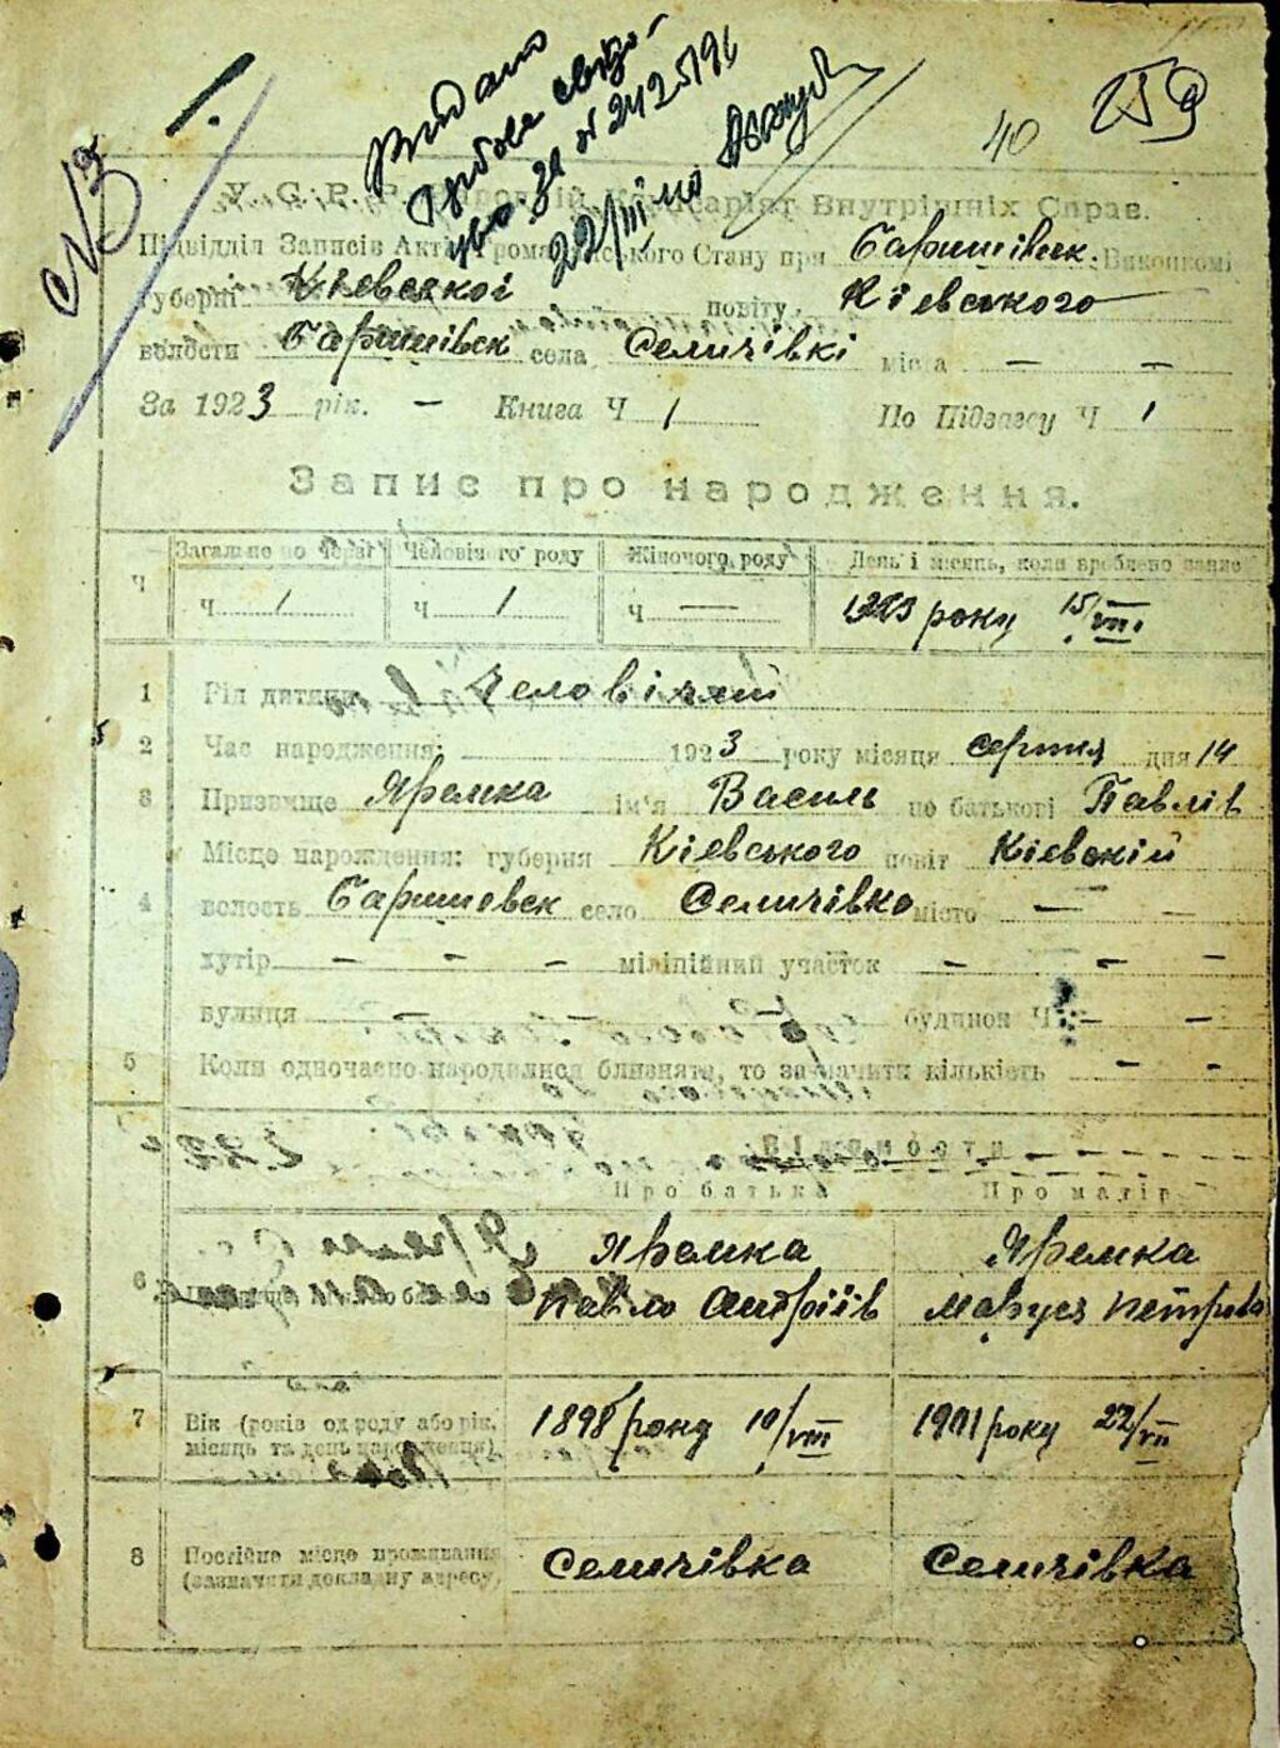 Видано
259
40
№3
22/III 40
У.С.Р.Р. Народній Комісаріят Внутрішніх Справ.
Підвідділ Записів Актів Громадянського Стану при Баришівськ. Виконкомі
Губерні Кіевської повіту Кіевського
волости Баришівск села Селичівкі міста — —
За 1923 рік. — Книга Ч 1 По Підзагсу Ч 1
Запис про народження.
Ч Загальне по черзі Чоловічого роду Жіночого роду День і місяць, коли зроблено запис
Ч 1 Ч 1 Ч — 1923 року 15/VIII.
1 Рід дитини Человічий
2 Час народження: 1923 року місяця серпня дня 14
3 Призвище Яремка ім'я Василь по батькові Павлів
Місце нарождення: губерня Кіевського повіт Кіевский
4 волость Баришевск село Селичівка місто — —
хутір — — — міліційний участок — — —
вулиця — — будинок Ч — —
5 Коли одночасно народилися близнята, то зазначити кількість — —
Відомости
Про батька Про матір
6 Яремка Яремка
Павло Андріїв Маруся Петрова
7 Вік (років од роду або рік, 1898 року 10/VIII 1901 року 22/VII
місяць та день народження)
8 Постійне місце проживання Селичівка Селичівка
(зазначити докладну адресу,